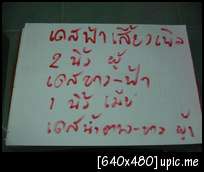 เดสฟ้าเสี้ยวเพิล
2 นิ้ว ผู้
เดสขาว-ฟ้า
1 นิ้ว เมีย
เดสน้ำตาล-ขาว ผู้
[640x480] upic.me